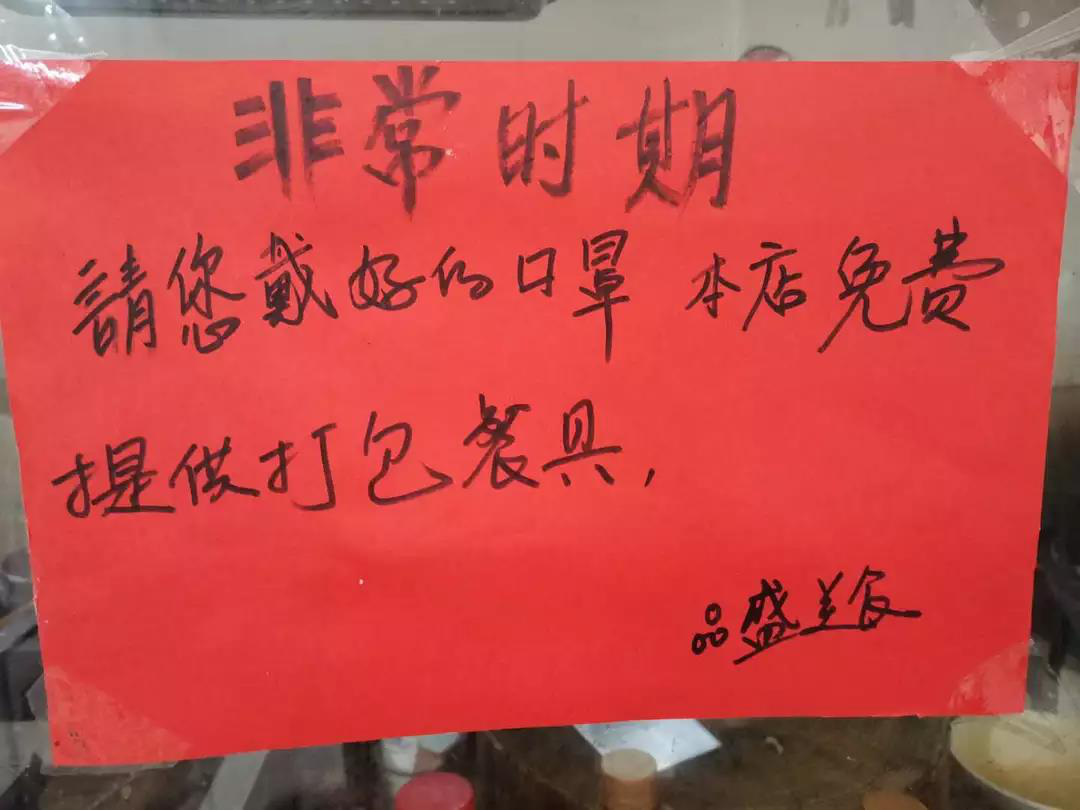 非常时期
請您戴好的口罩 本店免费
提供打包餐具,
品盛美食